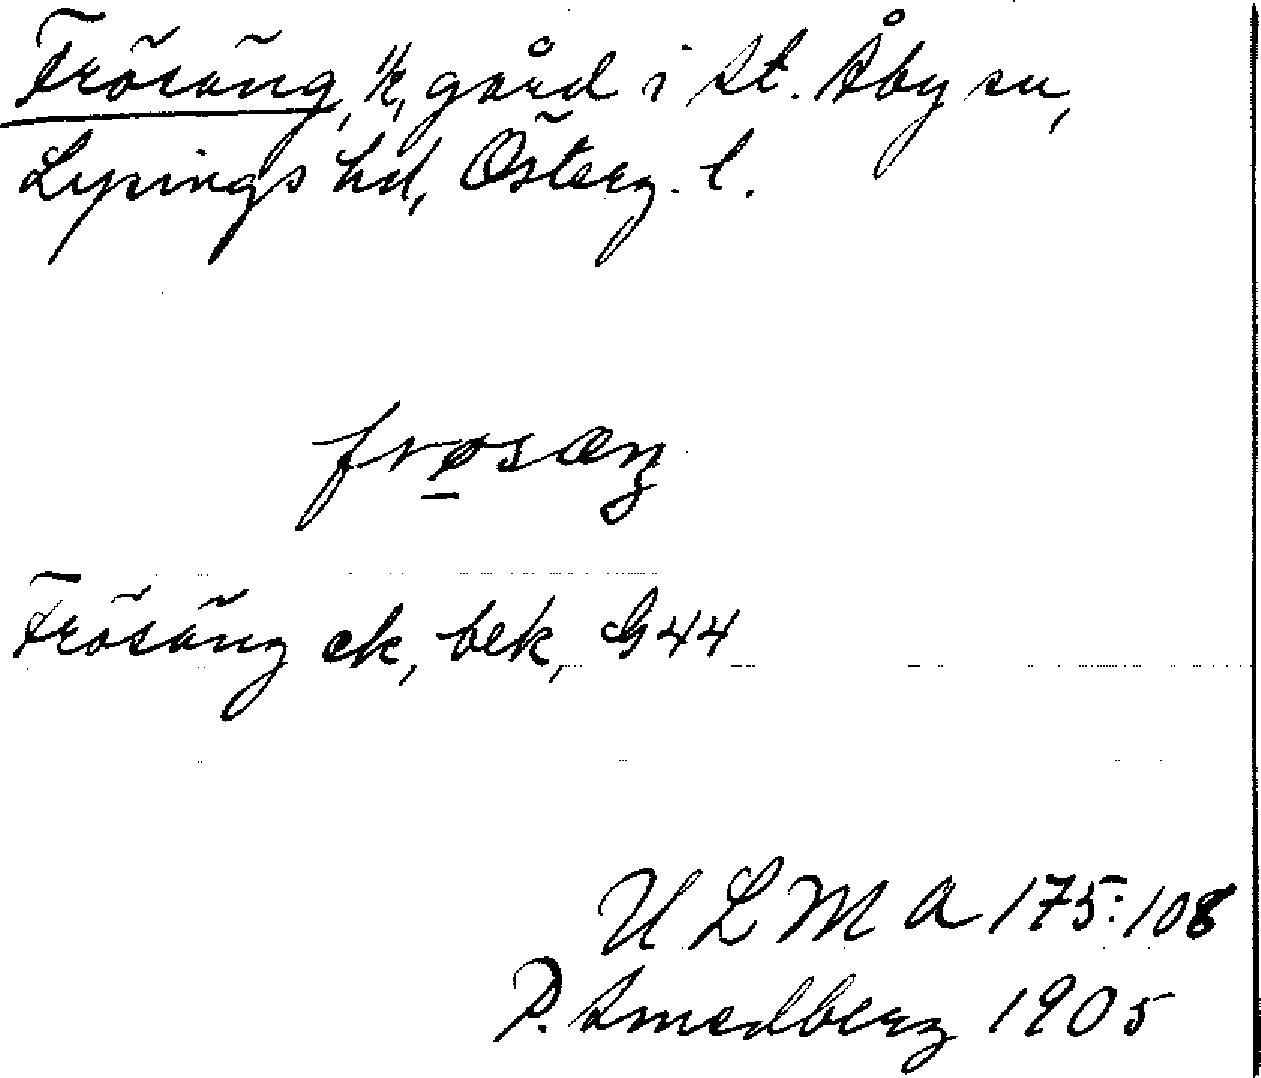 Frösäng, 1/2, gård i St. Åby sn,
Lysings hd, Österg. l.
frøsæŋ
Frösäng ek, bek, G44
ULMA 175:108
P. Smedberg 1905